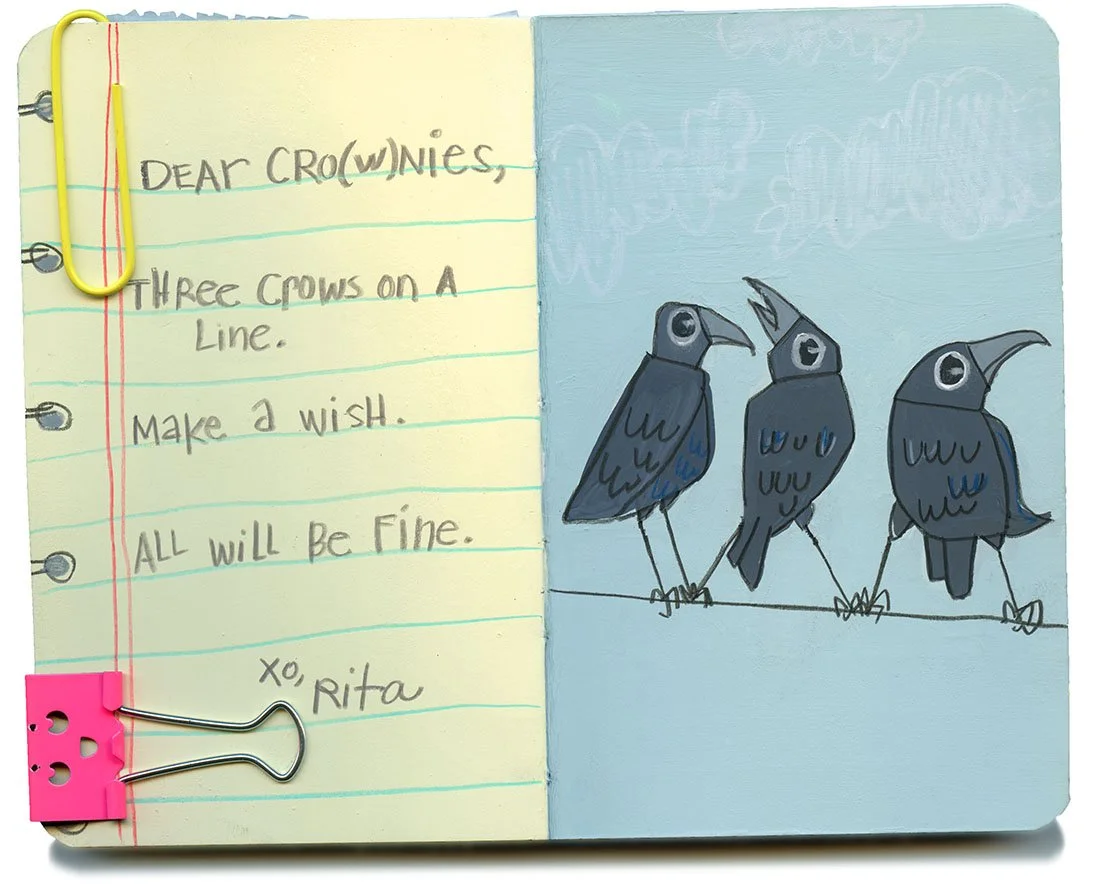 DEAR CRO(W)NIES,
THREE CROWS ON A
LINE.
MAKE A WISH.
ALL WILL BE FINE.
XO, RITA